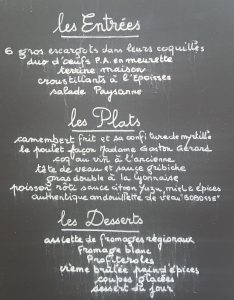 les Entrées
6 gros escargots dans leurs coquilles
duo d'oeufs P.A. en meurette
terrine maison
croustillants à l'Epoisses
salade Paysanne
les Plats
camembert frit et sa confiture de myrtille
le poulet façon Madame Gaston Gérard
coq au vin à l'ancienne
tête de veau et sauce gribiche
gras double à la lyonnaise
poisson rôti sauce citron yuzu, miel e épices
authentique andouillette de veau "BOBOSSE"
les Desserts
assiette de fromages régionaux
Fromage blanc
Profiteroles
crème brûlée pain d'épices
coupes glacées
dessert du jour